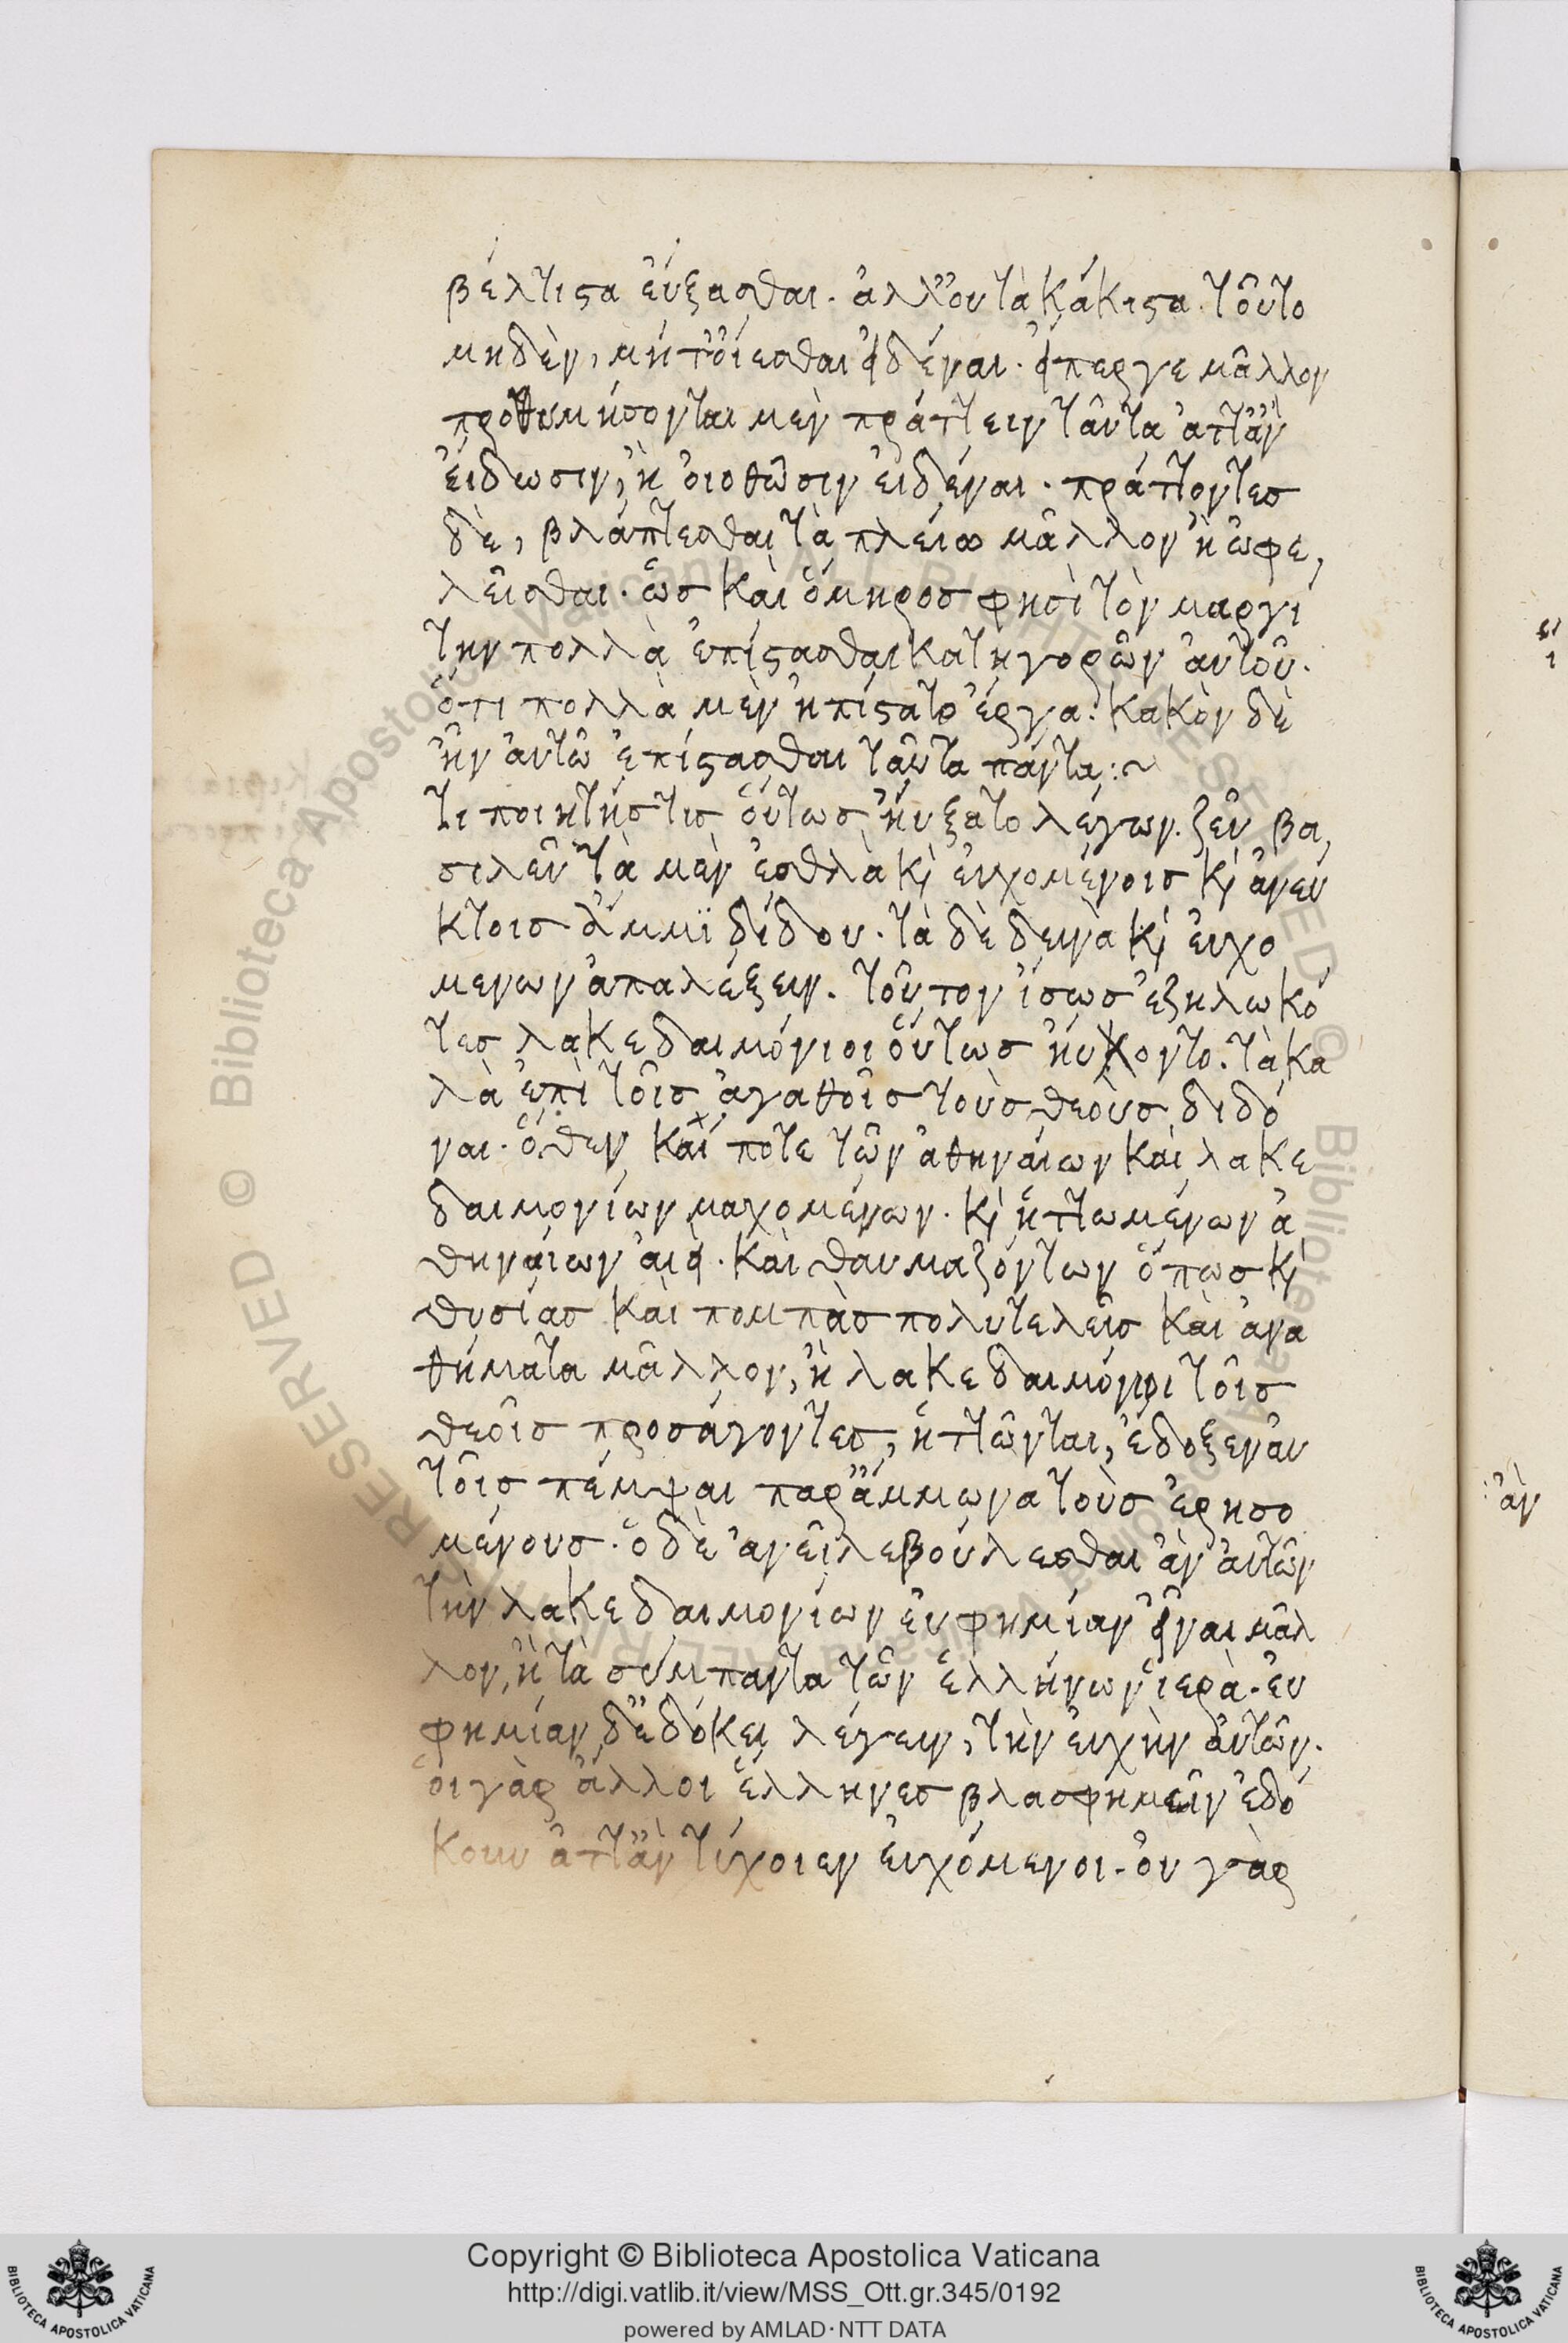 βέλτιστα εὔξασθαι. ἀλλ' οὐ τὰ κάκιστα. τοῦτο
μηδὲν, μήτ' οἴεσθαι εἰδέναι. εἴπερ γε μᾶλλον
προθυμήσονται μὲν πράττειν ταῦτα ἅττ' ἂν
εἰδῶσιν, ἢ οἰηθῶσιν εἰδέναι. πράττοντες
δὲ, βλάπτεσθαι τὰ πλείω μᾶλλον ἢ ὠφε,
λεῖσθαι. ὡς καὶ ὅμηρος φησὶ τὸν μαργί
την πολλὰ ἐπίστασθαι κατηγορῶν αὐτοῦ.
ὅτι πολλὰ μὲν ἠπίστατο ἔργα. κακὸν δὲ
ἦν αὐτῶ ἐπίστασθαι ταῦτα πάντα:~
τι ποιητής τις οὕτως ηὔξατο λέγων. ζεῦ βα,
σιλεῦ τὰ μὲν ἐσθλὰ κὶ εὐχομένοις κὶ ἀνεύ
κτοις ἄμμϊ δίδου. τὰ δὲ δεινὰ κὶ εὐχο
μενων ἀπαλέξειν. τοῦτον ἴσως ἐζηλωκό
τες λακεδαιμόνιοι οὕτως ηὔχοντο. τὰ κα
λὰ ἐπὶ τοῖς ἀγαθοῖς τοὺς θεοὺς διδό
ναι. ὅθεν καί ποτε τῶν ἀθηναίων καὶ λακε
δαιμονίων μαχομένων. κὶ ἡττωμένων ἀ
θηναίων αἰεί. καὶ θαυμαζόντων ὅπως κὶ
θυσίας καὶ πομπὰς πολυτελεῖς καὶ ἀνα
θήματα μᾶλλον, ἢ λακεδαιμόνιοι τοῖς
θεοῖς προσάγοντες, ἡττῶνται, ἔδοξεν αὐ
τοῖς πέμψαι παρ' ἄμμωνα τοὺς ἐρησο
μένους. ὁ δὲ ἀνεῖλε βούλεσθαι ἂν αὐτῶν
τὴν λακεδαιμονίων εὐφημίαν εἶναι μᾶλ
λον, ἢ τὰ σύμπαντα τῶν ἑλλήνων ἱερὰ. εὐ
φημίαν δ' ἐδόκει λέγειν, τὴν εὐχὴν αὐτῶν.
οἱ γὰρ ἄλλοι ἕλληνες βλασφημεῖν ἐδό
κουν ἅττ' ἂν τύχοιεν εὐχόμενοι. οὐ γὰρ
ἀν
© Biblioteca Apostolica Vaticana ALL RIGHTS RESERVED
Copyright © Biblioteca Apostolica Vaticana
http://digi.vatlib.it/view/MSS_Ott.gr.345/0192
powered by AMLAD·NTT DATA
BIBLIOTECA APOSTOLICA VATICANA
BIBLIOTECA APOSTOLICA VATICANA